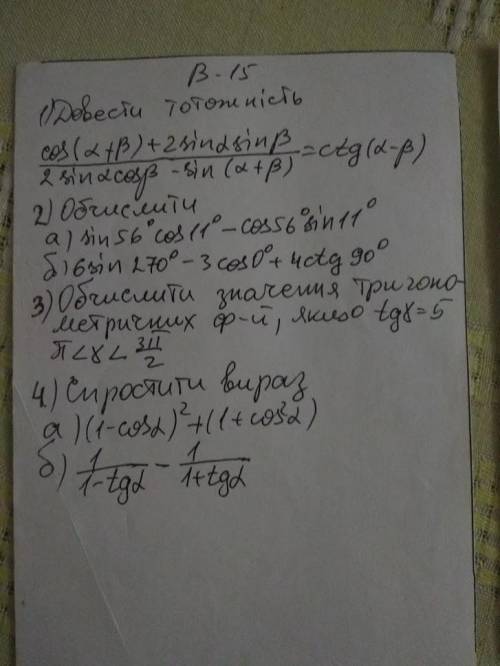 В-15
1) Довести тотожність
cos(α+β)+2sinαsinβ / 2sinαcosβ-sin(α+β) = ctg(α-β)
2) Обчислити
а) sin56°cos11°-cos56°sin11°
б) 6sin270°-3cos0°+4ctg90°
3) Обчислити значення тригоно-
метричних ф-й, якщо tgγ=5
π<γ<3π/2
4.) Спростити вираз
а) (1-cosα)²+(1+cos²α)
б) 1/1-tgα - 1/1+tgα